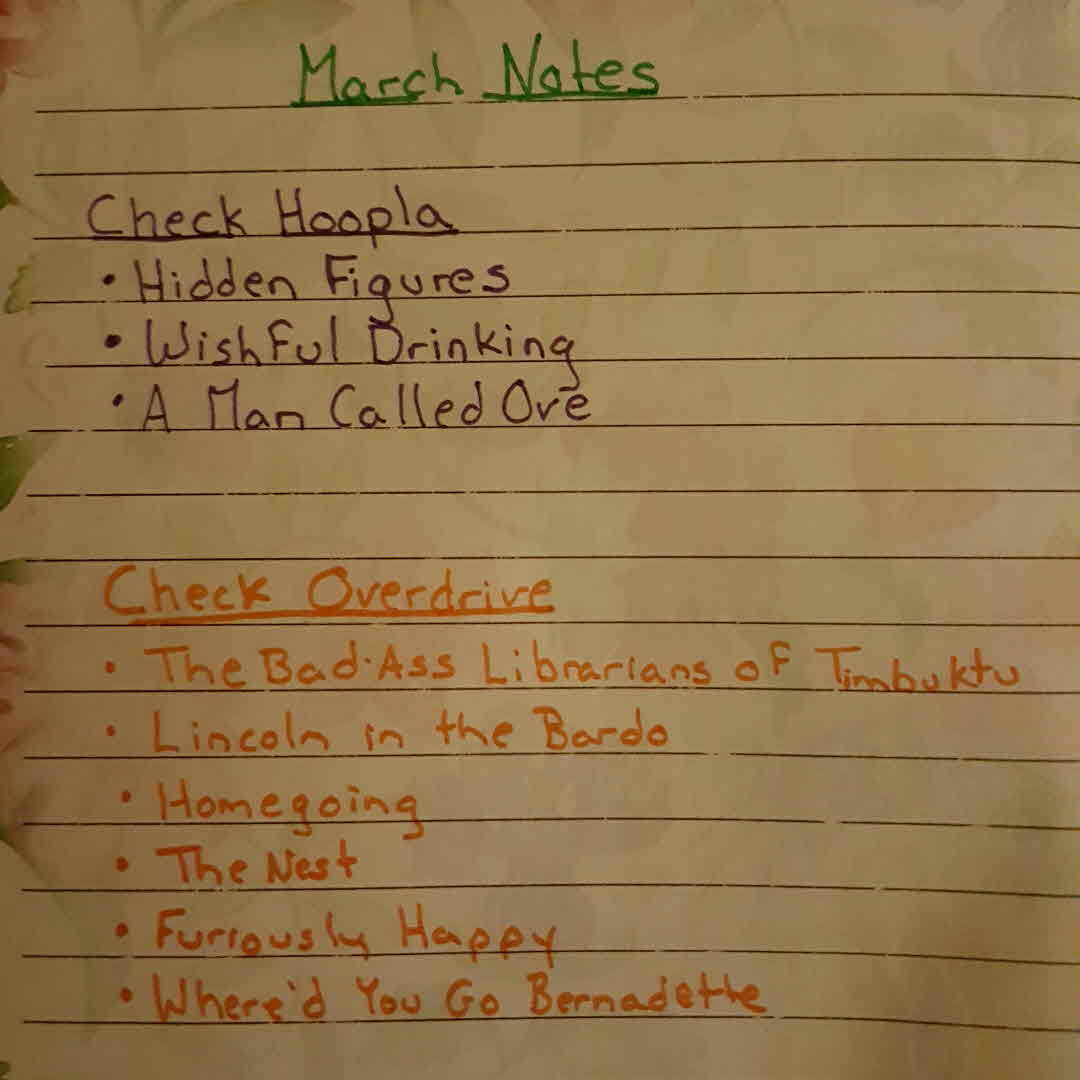 March Notes
Check Hoopla
• Hidden Figures
• Wishful Drinking
• A Man Called Ove
Check Overdrive
• The Bad-Ass Librarians of Timbuktu
• Lincoln in the Bardo
• Homegoing
• The Nest
• Furiously Happy
• Where'd You Go Bernadette